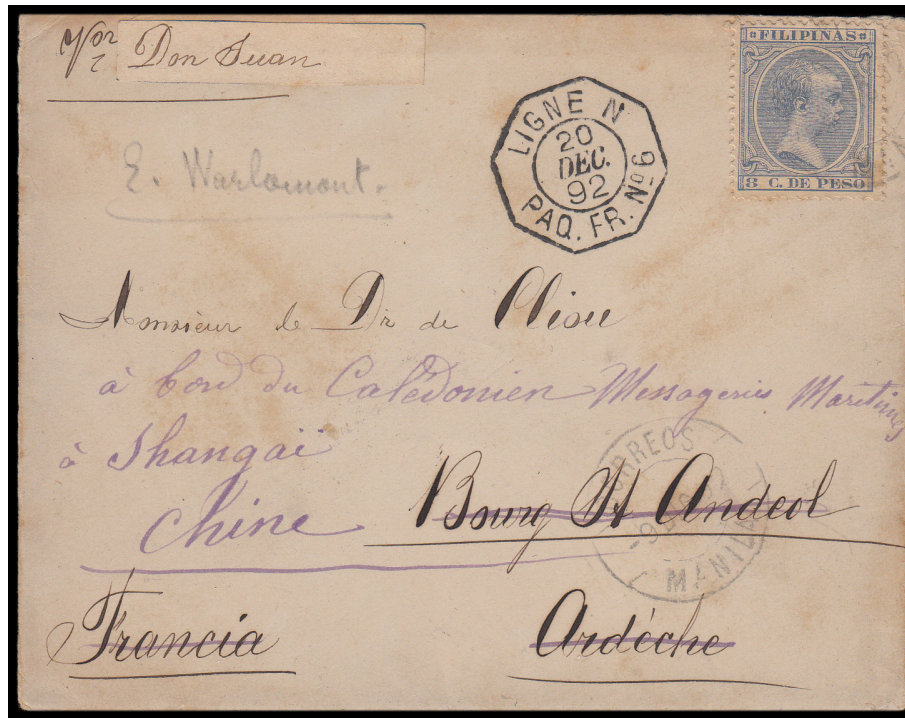 Por Don Juan
FILIPINAS
8 C. DE PESO
LIGNE N
20
DEC.
92
PAQ. FR. Nº6
E. Warlomont.
Monsieur le Dr de
à bord du Calédonien Messageries Maritimes
à Shangaï
Chine
Bourg St Andeol
CORREOS
MANILA
Francia
Ardéche